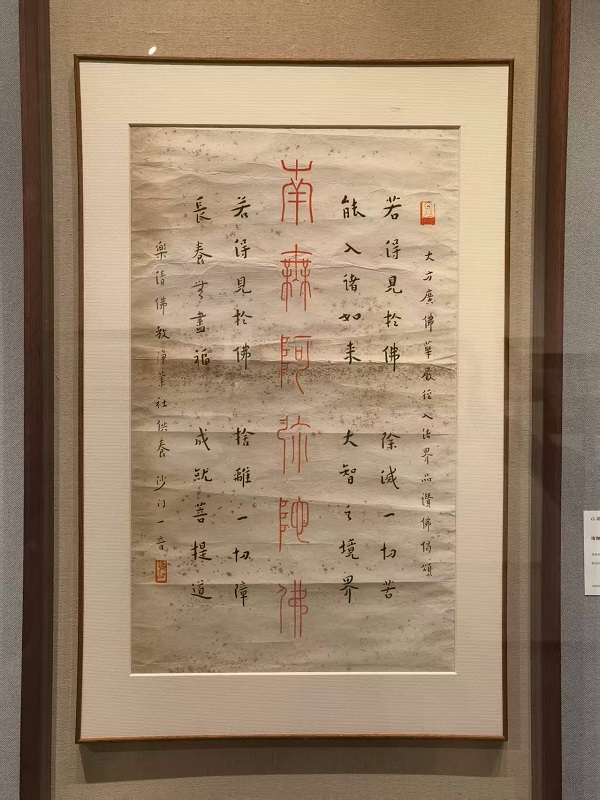 大方廣佛華嚴經入法界品讚佛偈頌
若得見於佛 除滅一切苦
能入諸如来 大智之境界
南無阿弥陀佛
若得見於佛 捨離一切障
長養無盡福 成就菩提道
樂清佛教淨業社供養 沙门一音